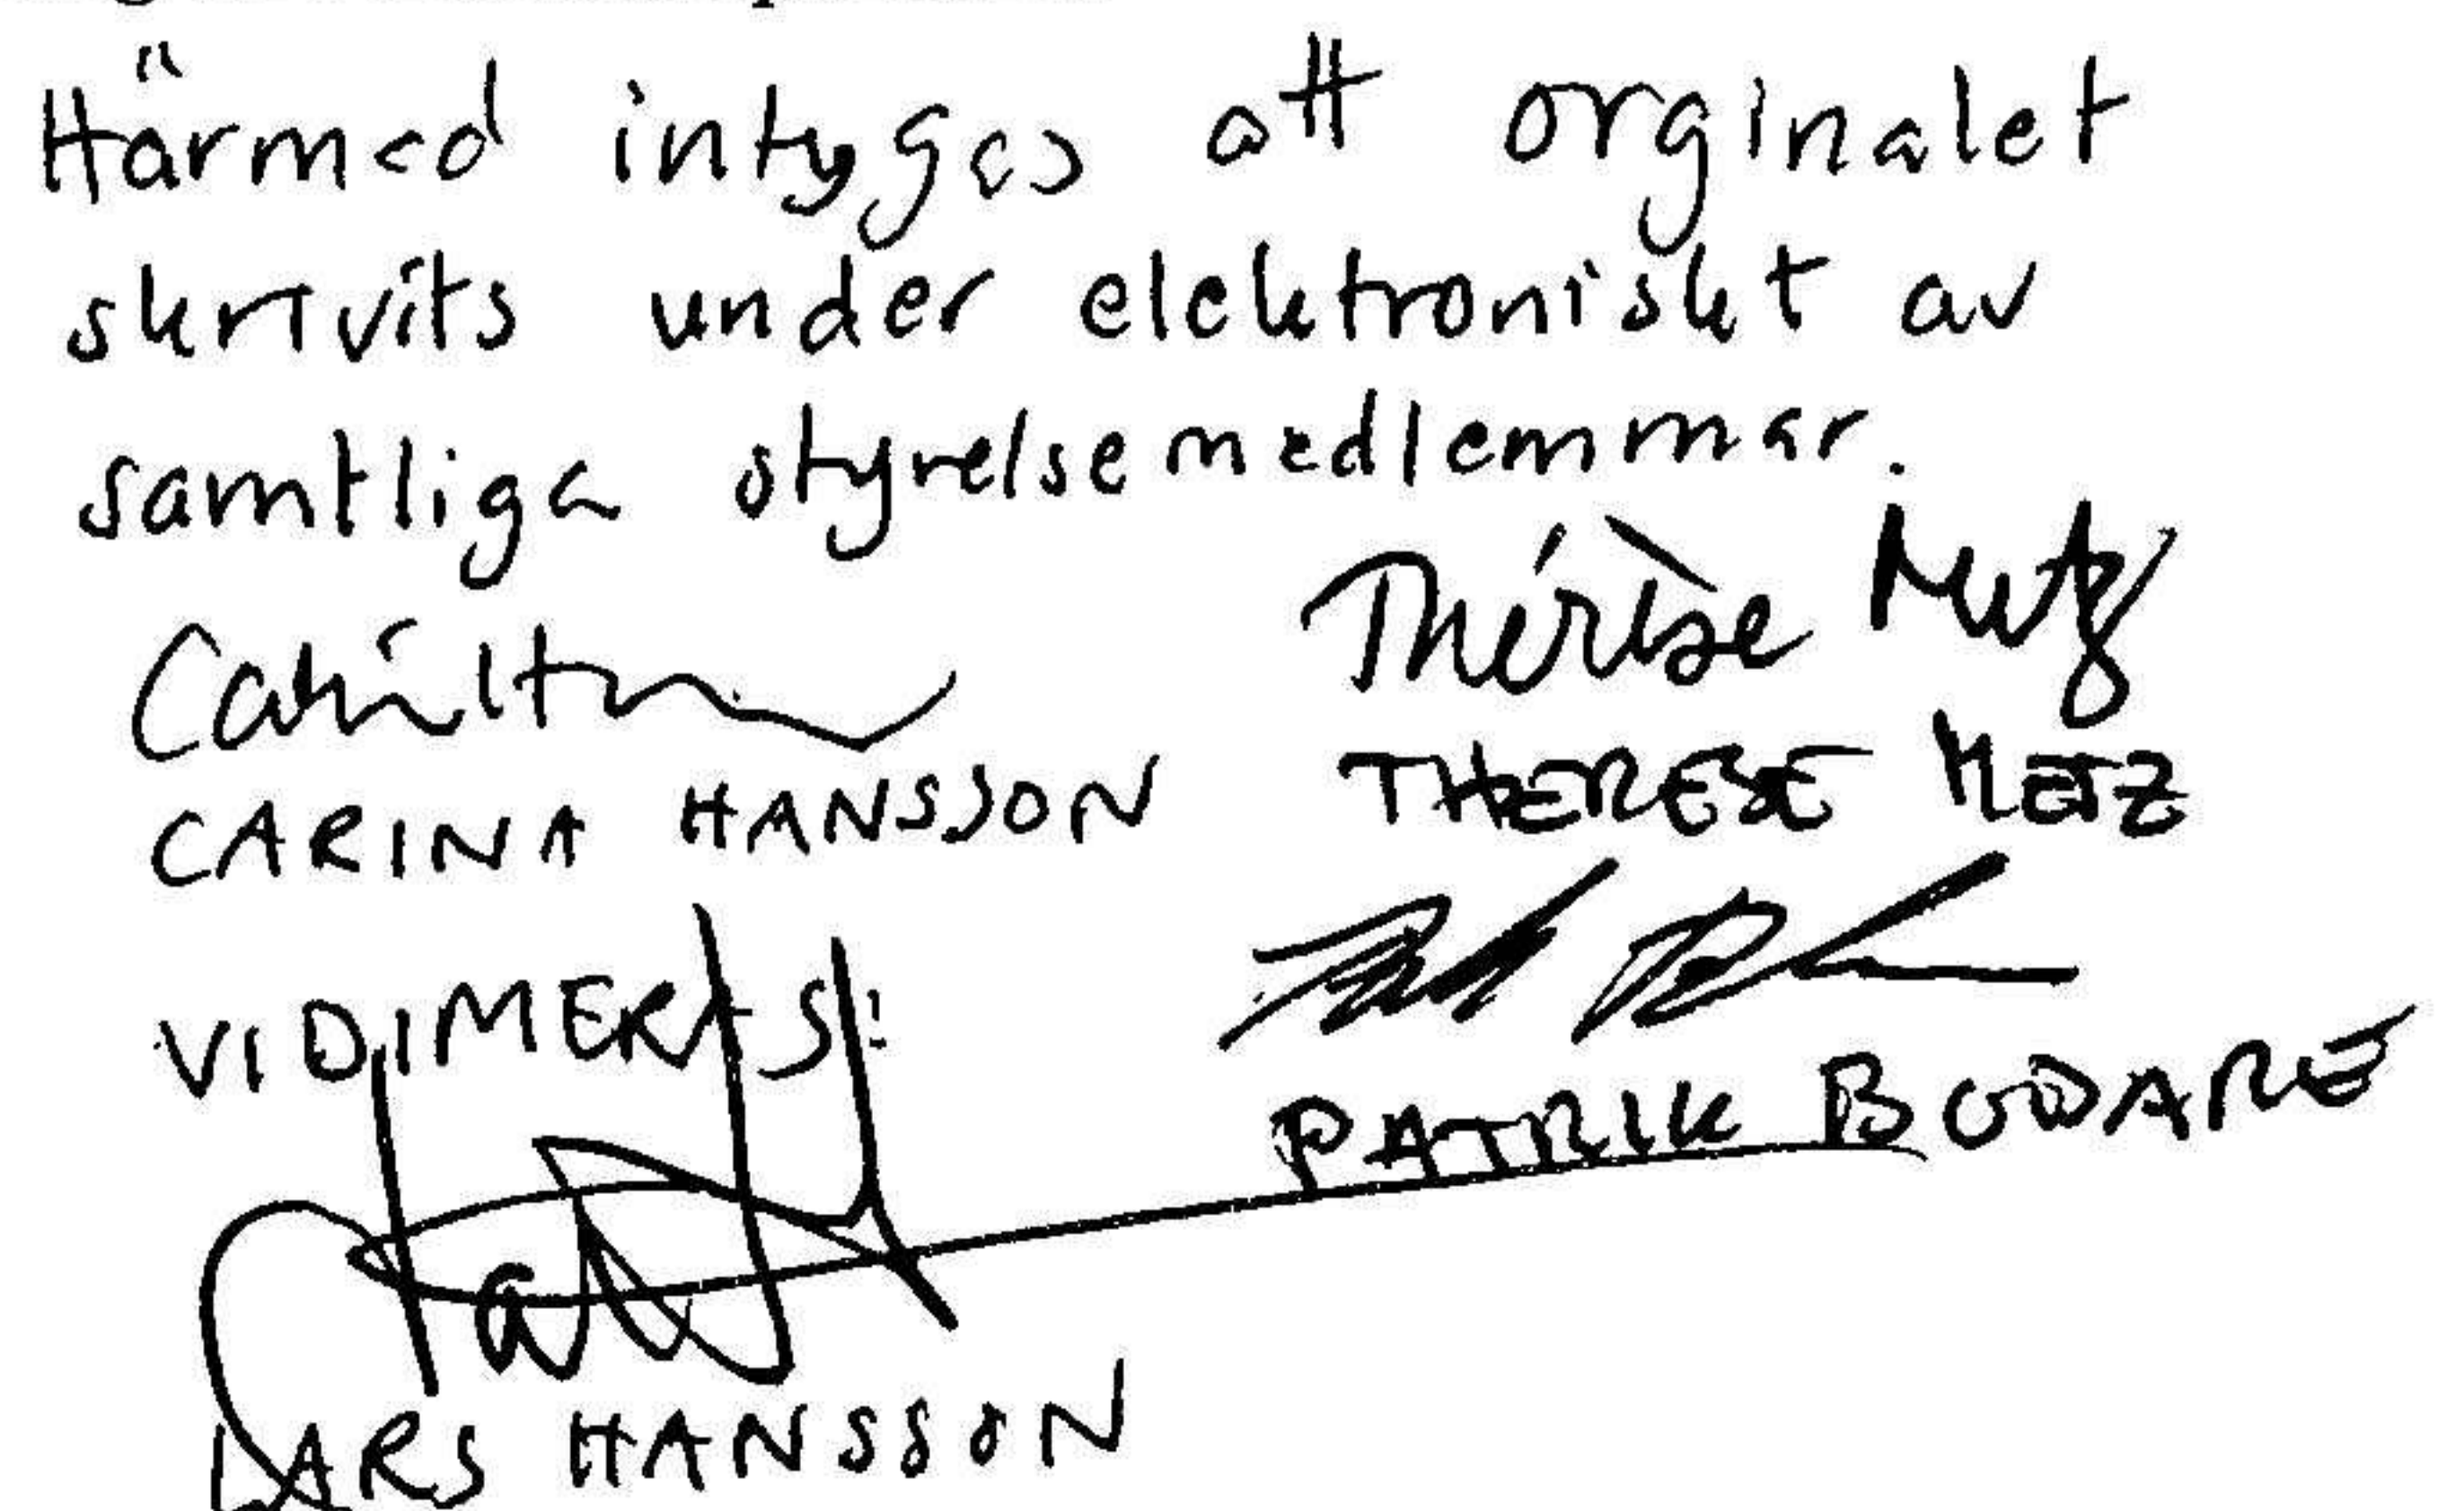 Härmed intygas att orginalet
skrivits under elektroniskt av
samtliga styrelsemedlemmar.
Thérèse Metz
CARINA HANSSON
THERESE METZ
VIDIMERAS:
PATRIK BODARE
LARS HANSSON